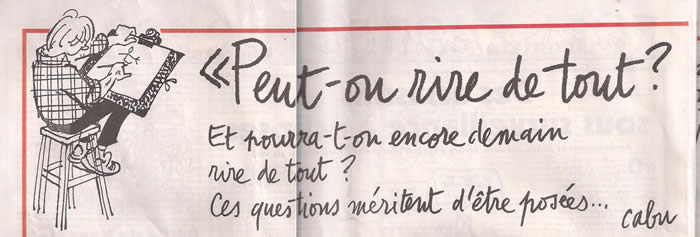 «Peut-on rire de tout ?
Et pourra-t-on encore demain
rire de tout ?
Ces questions méritent d'être posées...
cabu